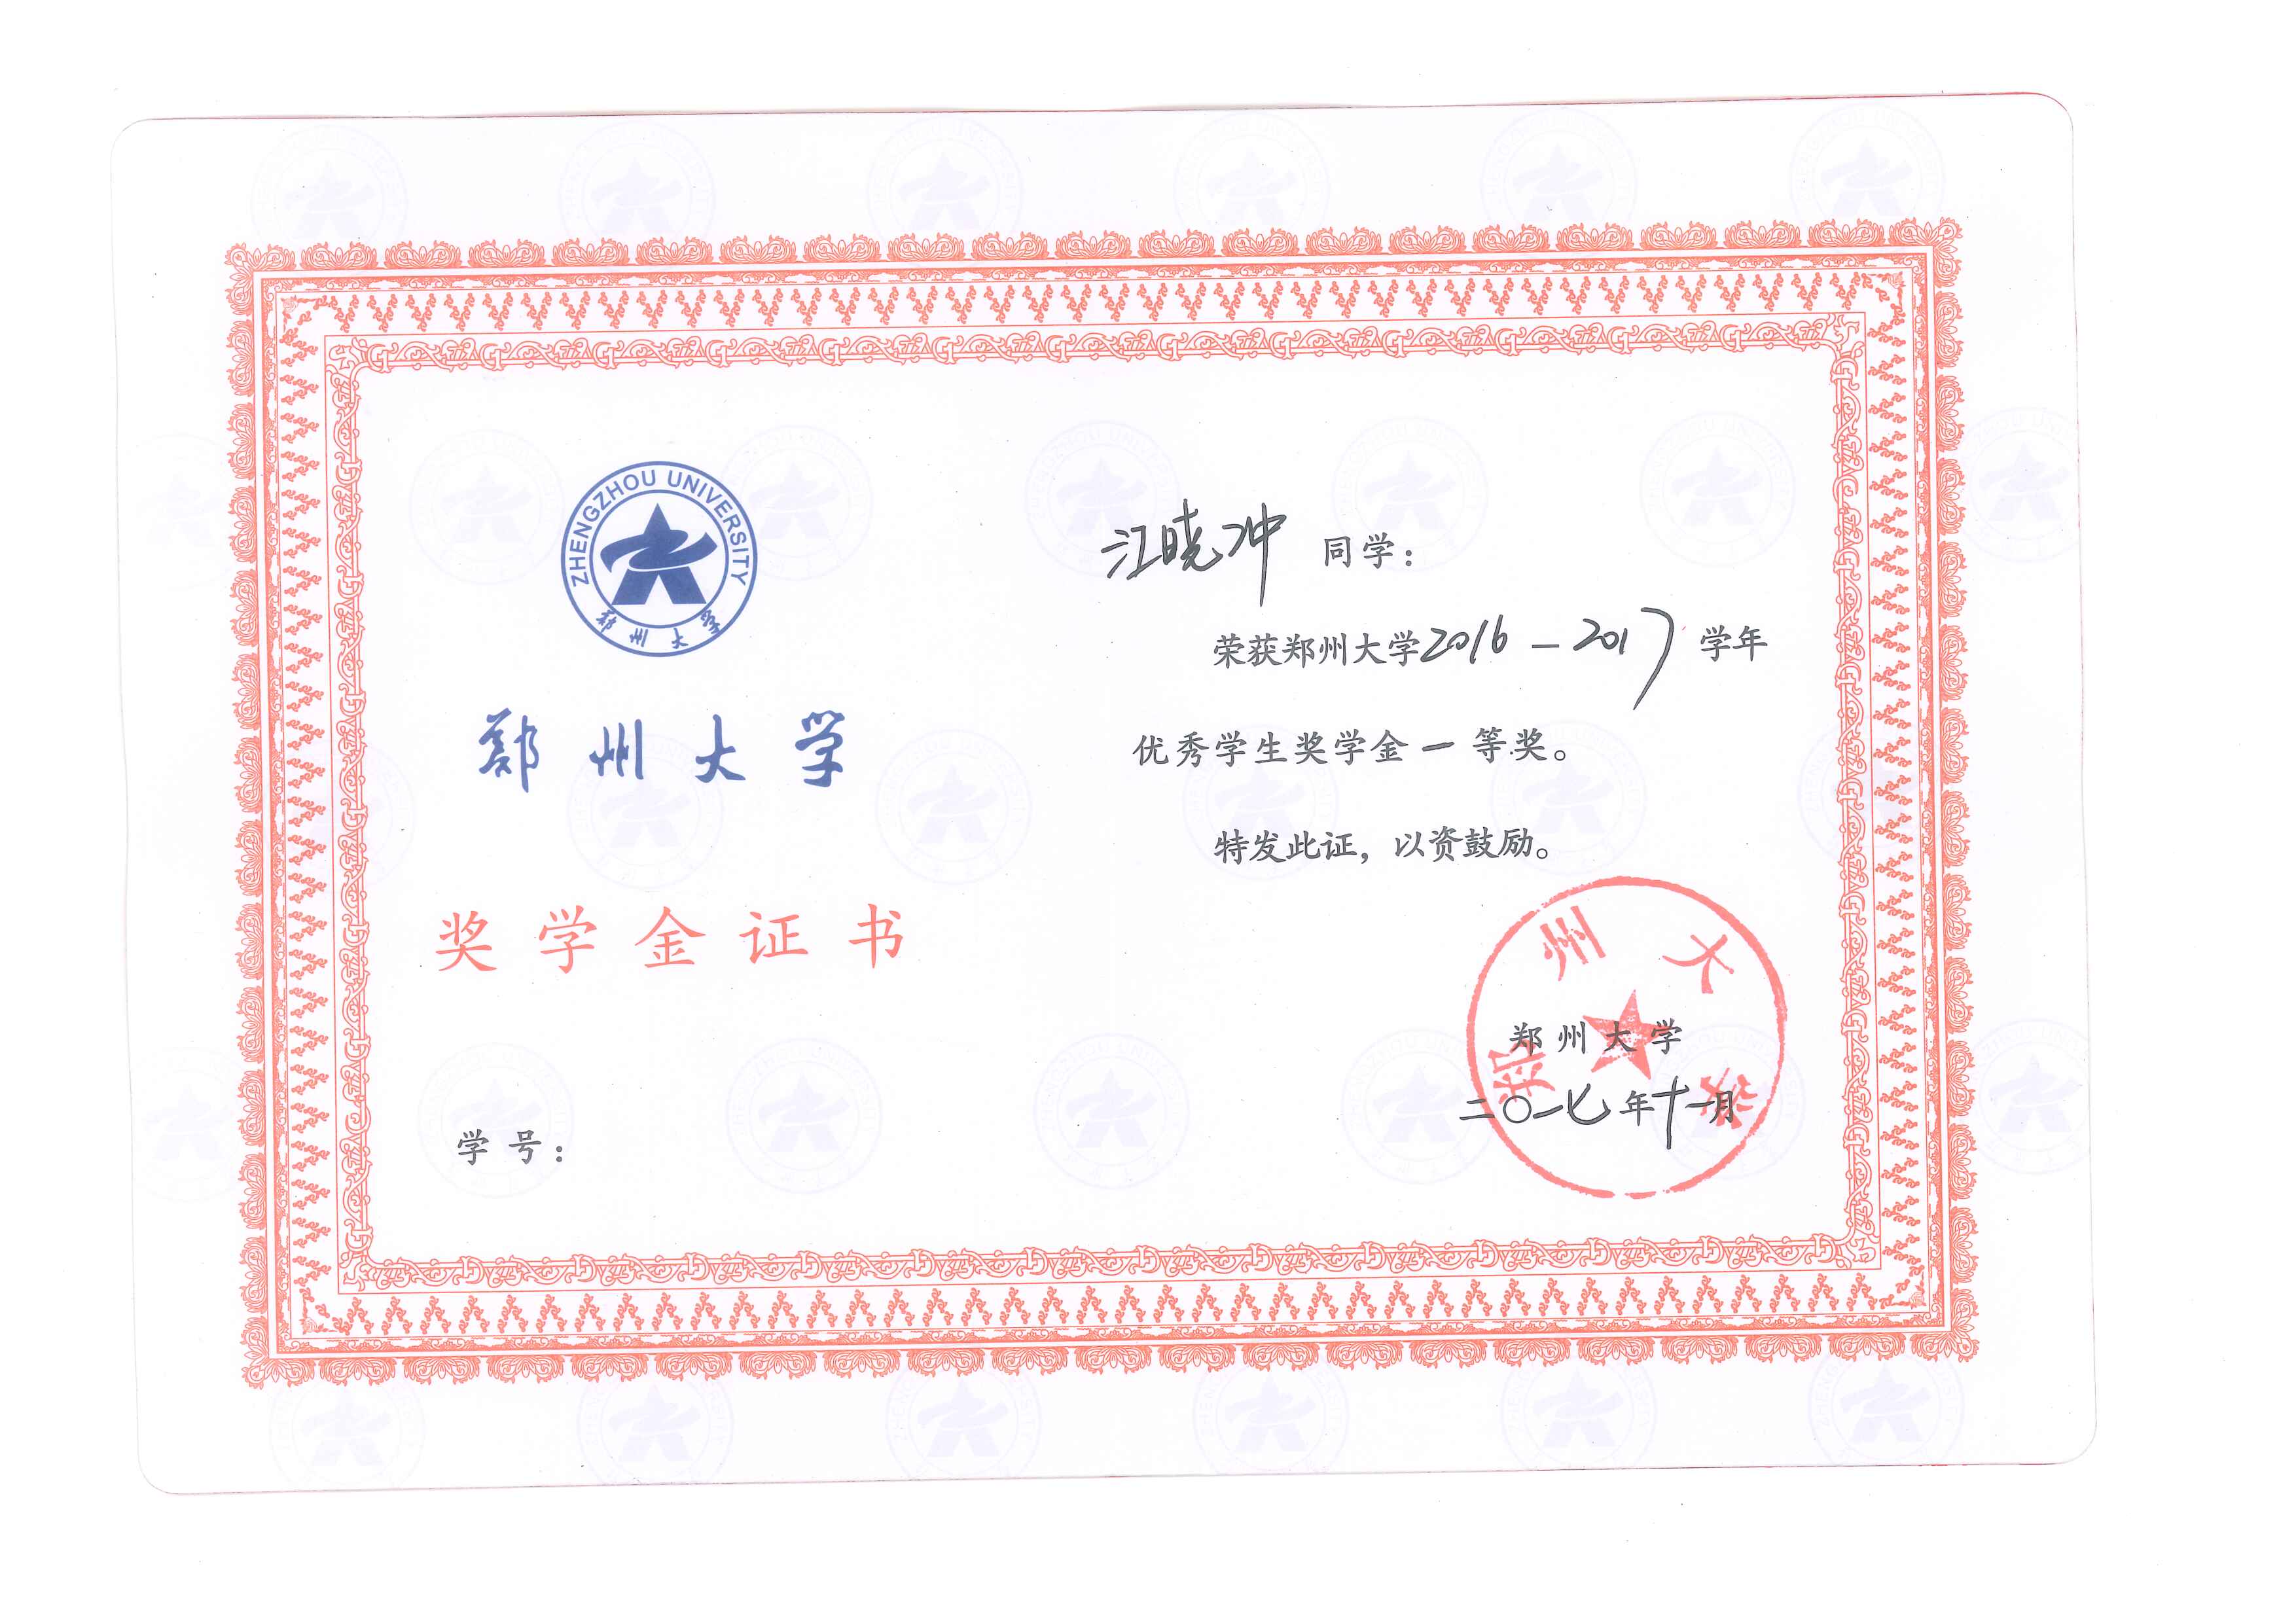 ZHENGZHOU UNIVERSITY
郑州大学
郑州大学
奖学金证书
学号：
江晓冲 同学：
荣获郑州大学2016-2017学年
优秀学生奖学金一等奖。
特发此证，以资鼓励。
郑州大学
郑州大学
二〇一七年十一月